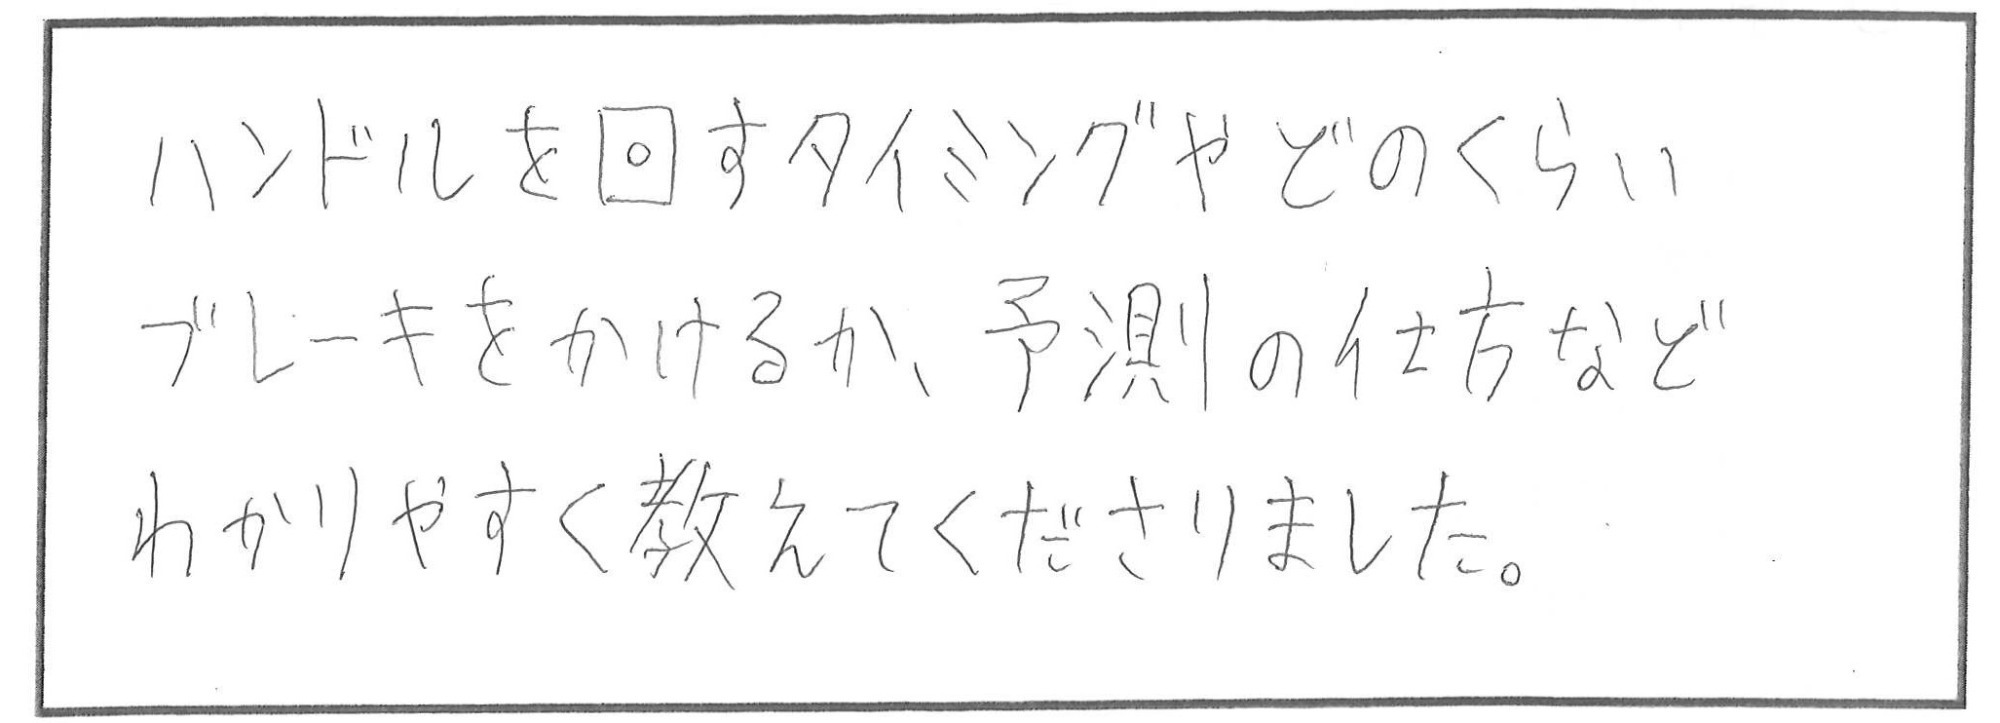 ハンドルを回すタイミングやどのくらい
ブレーキをかけるか、予測の仕方など
わかりやすく教えてくださりました。